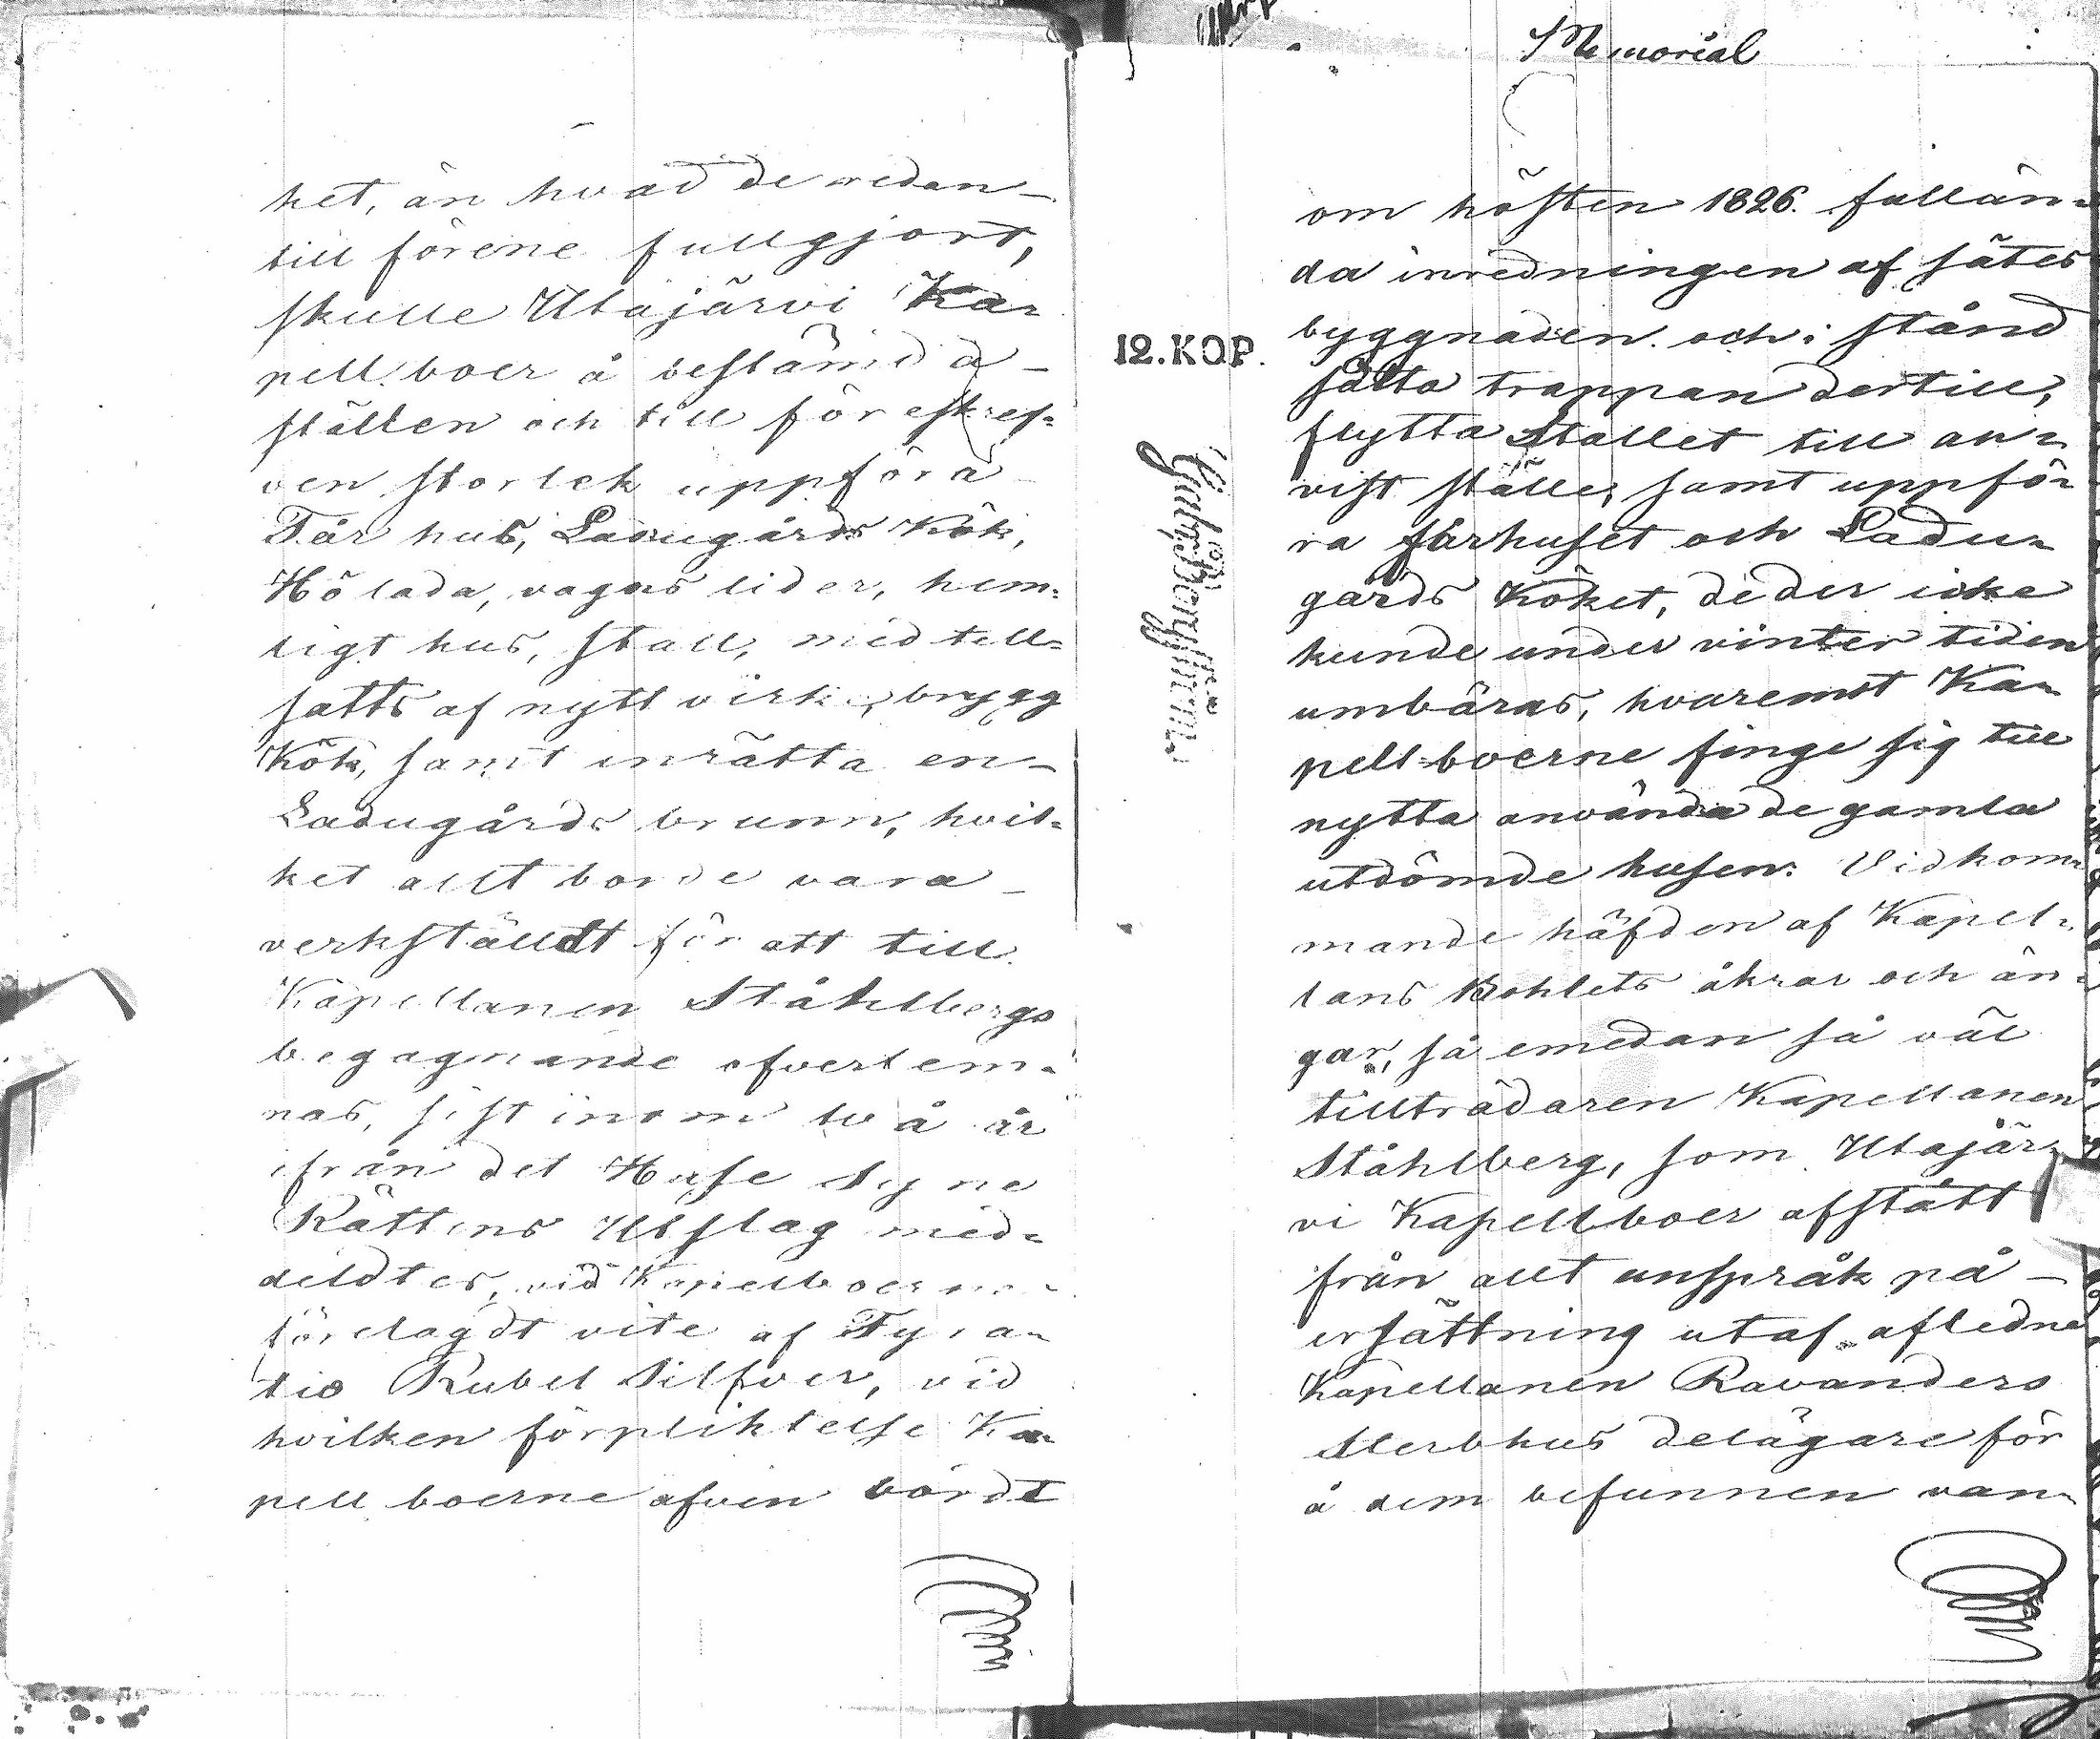 het, än hvad de redan
till förene fullgjort,
skulle Utajärvi Ka-
pell boer å bestämda
ställen och till föreskref-
ven storlek uppföra
Får hus, Ladugårds Kök,
Hö lada, vagns lider, hem-
ligt hus, stall, med till-
satts af nytt virke, brygg
Kök, samt inrätta en
Ladugårds brunn, hvil-
ket allt borde vara
verkställdt för att till
Kapellanen Ståhlbergs
begagnande öfverlem-
nas, sist inom två år
ifrån det Huse Syne
Rättens Utslag med-
deldtes, vid Kapellboerne
förelagdt vite af Fyra-
tio Rubel Silfver, vid
hvilken förpliktelse Ka-
pell boerne äfven bordt
Memorial
om hösten 1826. fullän-
da inredningen af sätes
byggnaden och i stånd
sätta trappan dertill,
flytta Stallet till an-
vist ställe, samt uppfö-
ra fårhuset och Ladu-
gårds Köket, de der icke
kunde under vinter tiden
umbäras, hvaremot Ka-
pell-boerne finge sig till
nytta använda de gamla
utdömde husen. Vidkom-
mande häfden af Kapel-
lans Bohlets åkrar och än-
gar, så emedan så väl
tillträdaren Kapellanen
Ståhlberg, som Utajär-
vi Kapellboer afstått
från allt anspråk på
ersättning utaf afledne
Kapellanen Ravanders
Sterbhus delägare för
å dem befunnen van-
12. KOP.